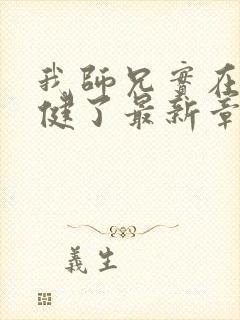 我師兄實在
健了最新章
義生